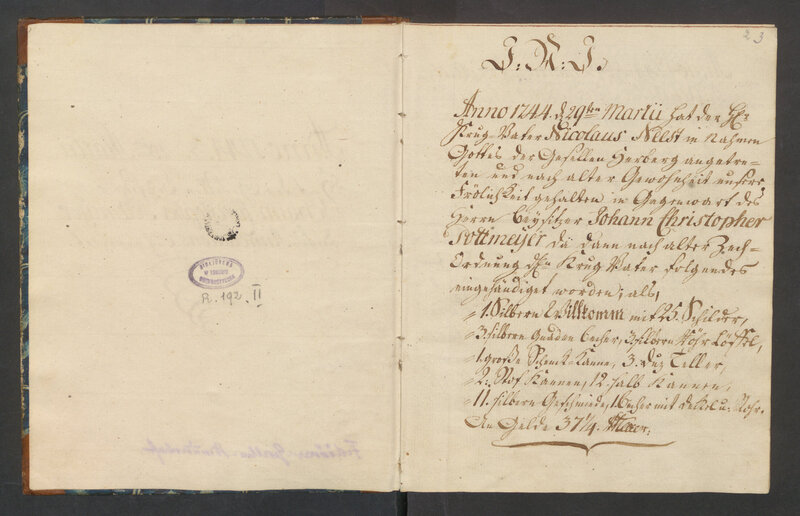 23
J. N. J.
Anno 1744. d. 29ten Martii hat der H.
Krug-Vater Nicolaus Nelst in Nahmen
Gottes der Gesellen Herberg angetre-
ten und nach alter Gewohnheit unsere
Frölichkeit gehalten in Gegenwart des
Herrn Beysitzer Johann Christopher
Pottmeijer da dann nach alter Zech-
Ordnung Krug Vater folgendes
eingehändiget worden, als,
1. Silbern Willkomm mit 25. Schilder,
3. silbern Becher, 3 silbern Löffel,
1 große Schenk-Kanne, 3. Duz Teller,
2. Stof Kannen, 12 halb Kannen,
11. silbern Geschmeide, 1 Becher mit Dekel u. Rohr.
An Gelde 37 1/4
R. 192. II